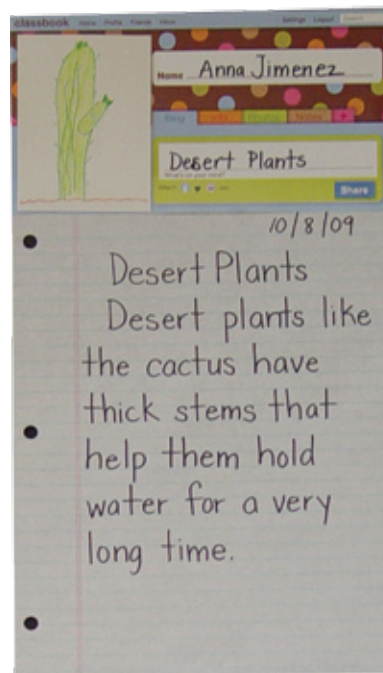 classbook Home Profile Friends Inbox Settings Logout Search
Name Anna Jimenez
Blog Info Photos Notes +
Desert Plants
What's on your mind?
Attach Share
10/8/09
Desert Plants
Desert plants like
the cactus have
thick stems that
help them hold
water for a very
long time.